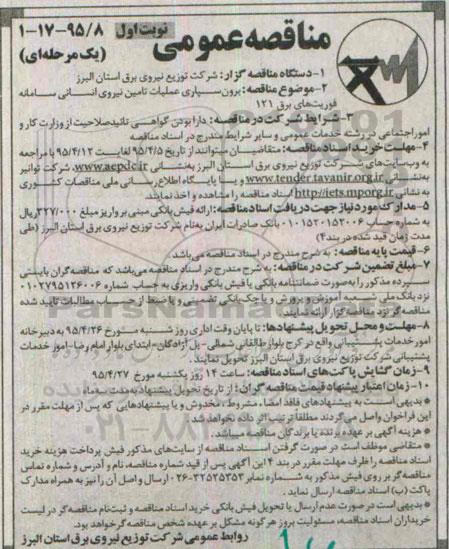 مناقصه عمومی نوبت اول ۹۵/۸-۱۷-۱
(یک مرحله‌ای)
۱-دستگاه مناقصه گزار: شرکت توزیع نیروی برق استان البرز
۲-موضوع مناقصه: برون سپاری عملیات تامین نیروی انسانی سامانه
فوریت‌های برق ۱۲۱
۳-شرایط شرکت در مناقصه: دارا بودن گواهی تائید صلاحیت از وزارت کار و
امور اجتماعی در رشته خدمات عمومی و سایر شرایط مندرج در اسناد مناقصه
۴-مهلت خرید اسناد مناقصه: متقاضیان میتوانند از تاریخ ۹۵/۴/۵ لغایت ۹۵/۴/۱۲ با مراجعه
به وب‌سایت‌های شرکت توزیع نیروی برق استان البرز به‌نشانی www.aepdc.ir، شرکت توانیر
به‌نشانی www.tender.tavanir.org.ir و یا پایگاه اطلاع رسانی ملی مناقصات کشوری
به نشانی http://iets.mporg.ir اسناد مناقصه را مشاهده و اخذ نمایند.
۵-مدارک مورد نیاز جهت دریافت اسناد مناقصه: ارائه فیش بانکی مبنی بر واریز مبلغ ۳۲۷/۰۰۰ ریال
به شماره حساب ۰۱۰۱۵۲۰۱۵۳۰۰۶ بانک صادرات ایران به‌نام شرکت توزیع نیروی برق استان البرز (طی
مدت زمان قید شده در بند۴)
۶-قیمت پایه مناقصه: به شرح مندرج در اسناد مناقصه می‌باشد.
۷-مبلغ تضمین شرکت در مناقصه: به شرح مندرج در اسناد مناقصه می‌باشد که مناقصه‌گران بایستی
سپرده مذکور را به‌صورت ضمانتنامه بانکی یا فیش بانکی واریزی به حساب شماره ۰۱۰۲۷۹۵۱۲۶۰۰۶
نزد بانک ملی شعبه آموزش و پرورش و یا چک بانکی تضمینی و یا ضبط از حساب مطالبات تایید شده
مناقصه گر نزد مناقصه گزار ارائه نمایند.
۸-مهلت و محل تحویل پیشنهادها: تا پایان وقت اداری روز شنبه مورخ ۹۵/۴/۲۶ به دبیرخانه
امور خدمات پشتیبانی واقع در کرج بلوار طالقانی شمالی-پل آزادگان-ابتدای بلوار امام رضا-امور خدمات
پشتیبانی شرکت توزیع نیروی برق استان البرز تحویل نمایند.
۹-زمان گشایش پاکت‌های اسناد مناقصه: ساعت ۱۴ روز یکشنبه مورخ ۹۵/۴/۲۷
۱۰-زمان اعتبار پیشنهاد قیمت مناقصه گران: از تاریخ تحویل پیشنهاد به‌مدت سه ماه
* بدیهی است به پیشنهادهای فاقد امضاء، مشروط، مخدوش و یا پیشنهادهایی که پس از مهلت مقرر در
این فراخوان واصل می‌گردند مطلقاً ترتیب اثر داده نخواهد شد.
* هزینه آگهی بر عهده برنده یا برندگان مناقصه میباشد.
* متقاضی موظف است در صورت گرفتن اسناد مناقصه از سایت‌های مذکور فیش پرداخت هزینه خرید
اسناد مناقصه را ظرف مهلت مقرر در بند ۴ این آگهی پس از قید شماره مناقصه، نام و آدرس و شماره تماس
مناقصه‌گر بر روی فیش مذکور به شماره نمابر ۳۲۵۲۵۳۵۳-۰۲۶ ارسال و اصل آن را نیز به همراه مدارک
پاکت (ب) اسناد مناقصه ارسال نماید.
* بدیهی است در صورت عدم ارسال یا تحویل فیش بانکی خرید اسناد مناقصه و ثبت نام مناقصه‌گر در لیست
خریداران اسناد مناقصه، مسئولیت بروز هر گونه مشکل بر عهده شخص مناقصه گر خواهد بود.
روابط عمومی شرکت توزیع نیروی برق استان البرز